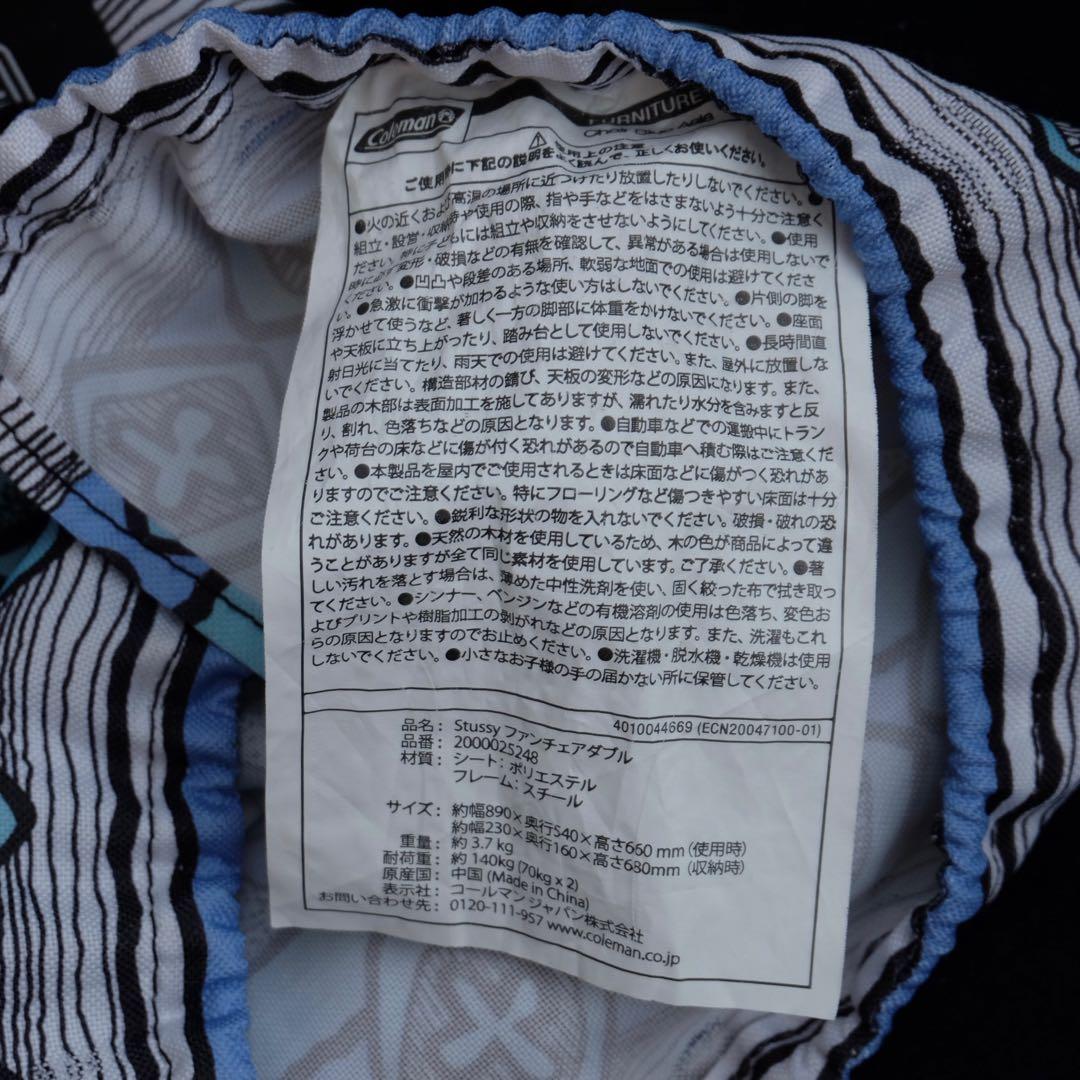 Coleman
FURNITURE
使用上の注意
ご使用前に下記の説明をよく読んで、正しくお使いください。
●火の近くおよび高温の場所に近づけたり放置したりしないでください。●
組立・設営・収納時や使用の際、指や手などをはさまないよう十分ご注意く
ださい。特に子どもには組立や収納をさせないようにしてください。●使用
時に必ず変形・破損などの有無を確認して、異常がある場合は使用しないで
ください。●凹凸や段差のある場所、軟弱な地面での使用は避けてくださ
い。●急激に衝撃が加わるような使い方はしないでください。●片側の脚を
浮かせて使うなど、著しく一方の脚部に体重をかけないでください。●座面
や天板に立ち上がったり、踏み台として使用しないでください。●長時間直
射日光に当てたり、雨天での使用は避けてください。また、屋外に放置しな
いでください。構造部材の錆び、天板の変形などの原因になります。また、
製品の木部は表面加工を施してありますが、濡れたり水分を含みますと反
り、割れ、色落ちなどの原因となります。●自動車などでの運搬中にトラン
クや荷台の床などに傷が付く恐れがあるので自動車へ積む際はご注意くだ
さい。●本製品を屋内でご使用されるときは床面などに傷がつく恐れがあ
りますのでご注意ください。特にフローリングなど傷つきやすい床面は十分
ご注意ください。●鋭利な形状の物を入れないでください。破損・破れの恐
れがあります。●天然の木材を使用しているため、木の色が商品によって違
うことがありますが全て同じ素材を使用しています。ご了承ください。●著
しい汚れを落とす場合は、薄めた中性洗剤を使い、固く絞った布で拭き取っ
てください。●シンナー、ベンジンなどの有機溶剤の使用は色落ち、変色お
よびプリントや樹脂加工の剥がれなどの原因となります。また、洗濯もこれ
らの原因となりますのでお止めください。●洗濯機・脱水機・乾燥機は使用
しないでください。●小さなお子様の手の届かない所に保管してください。
4010044669 (ECN20047100-01)
品名: Stussy ファンチェアダブル
品番: 2000025248
材質: シート: ポリエステル
フレーム: スチール
サイズ: 約幅890×奥行540×高さ660mm(使用時)
約幅230×奥行160×高さ680mm(収納時)
重量: 約3.7kg
耐荷重: 約140kg (70kg x 2)
原産国: 中国 (Made in China)
表示社: コールマンジャパン株式会社
お問い合わせ先: 0120-111-957 www.coleman.co.jp